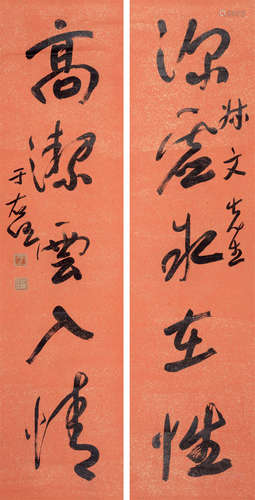 深虚水在性
林文先生
高潔雲入情
于右任